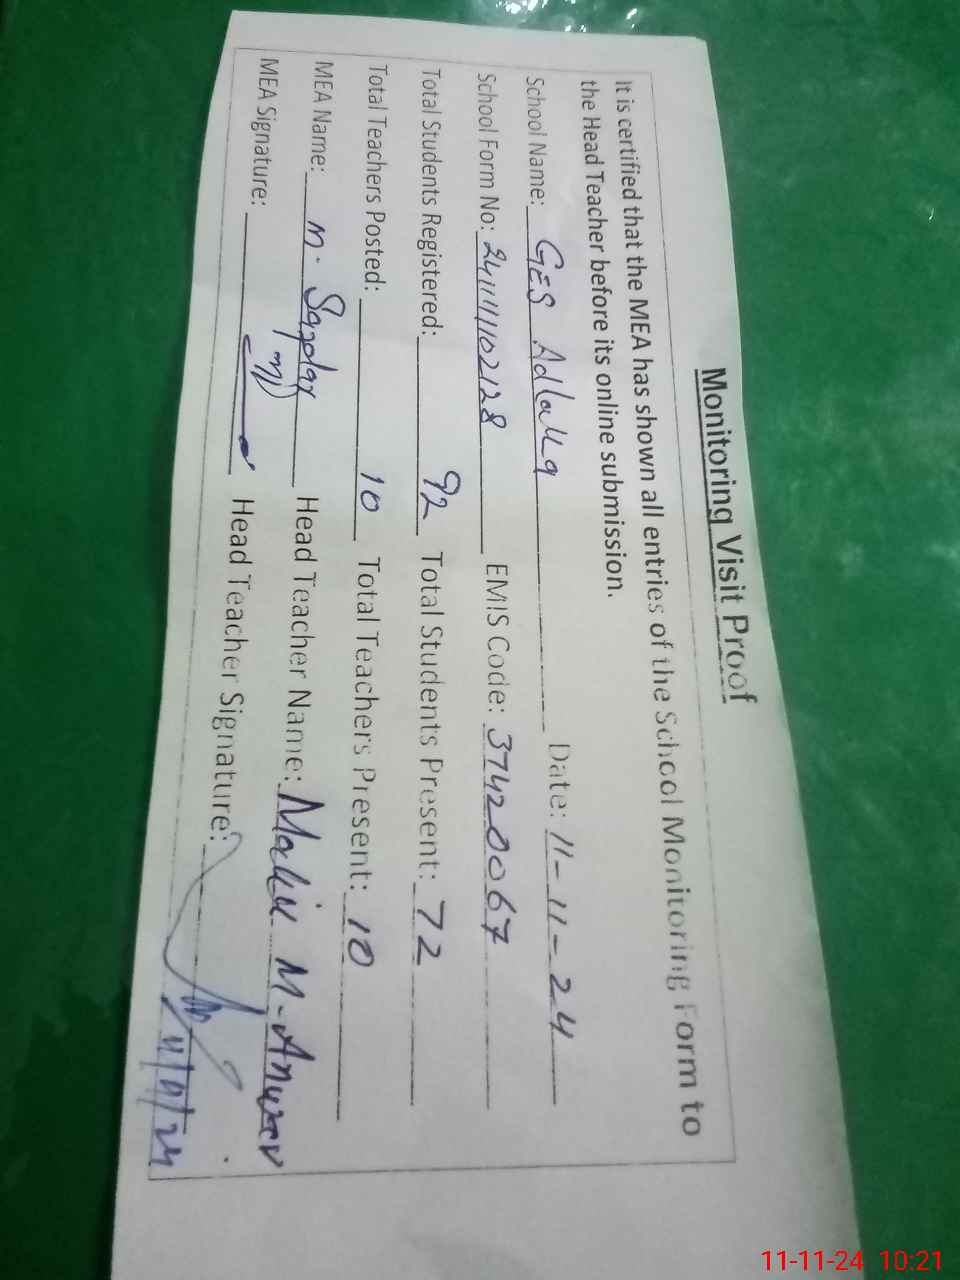 Monitoring Visit Proof
It is certified that the MEA has shown all entries of the School Monitoring Form to
the Head Teacher before its online submission.
School Name: GES Adlakha Date: 11-11-24
School Form No: 241111102128 EMIS Code: 37420067
Total Students Registered: 92 Total Students Present: 72
Total Teachers Posted: 10 Total Teachers Present: 10
MEA Name: M. Head Teacher Name: Malik M-Anwar
MEA Signature: Head Teacher Signature:
11/11/24
11-11-24 10:21